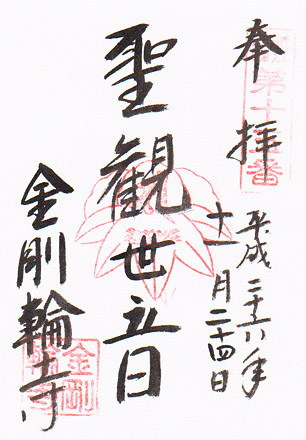 奉拝
第十五番
平成二十六年
十一月二十四日
聖観世音
金剛輪寺
金剛輪寺